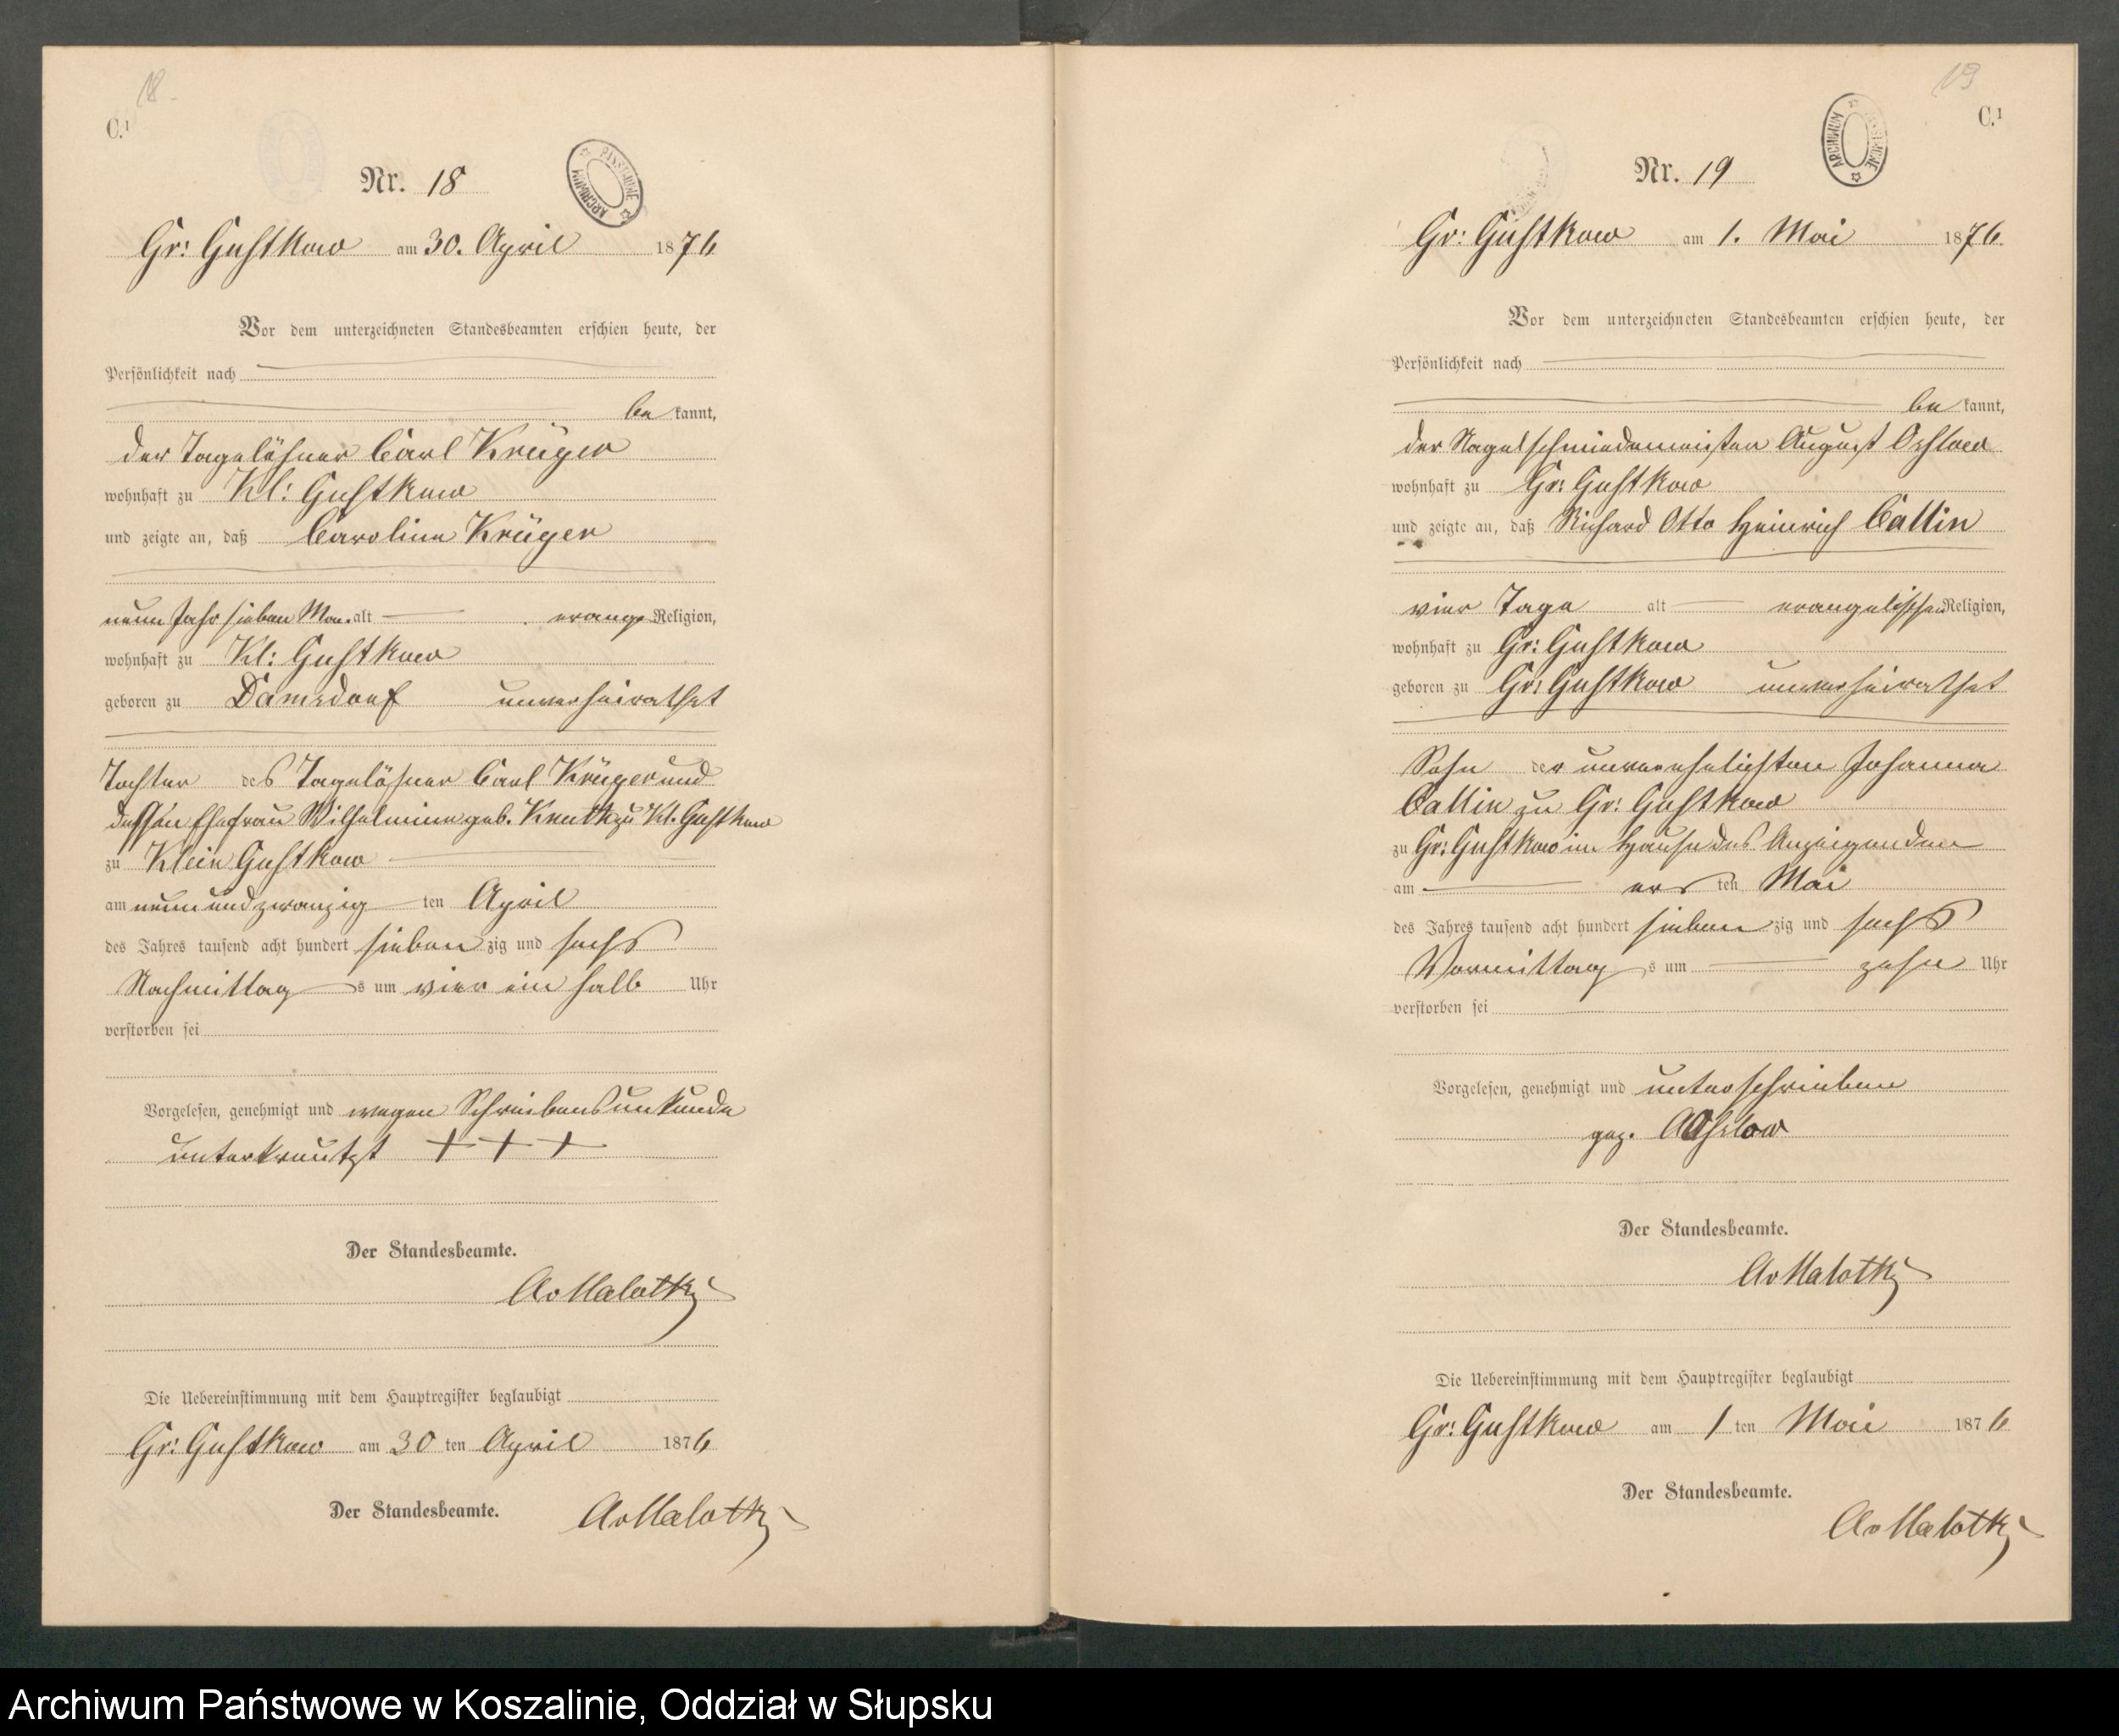 18.
C.1
Nr. 18
Gr: Gustkow am 30. April 1876
Vor dem unterzeichneten Standesbeamten erschien heute, der
Persönlichkeit nach
be kannt,
der Tagelöhner Carl Krüger
wohnhaft zu Kl: Gustkow
und zeigte an, daß Caroline Krüger
neun Jahr sieben Mon. alt evang. Religion,
wohnhaft zu Kl: Gustkow
geboren zu Damsdorf unverheirathet
Tochter des Tagelöhner Carl Krüger und
dessen Ehefrau Wilhelmine geb. zu Kl. Gustkow
zu Klein Gustkow
am neun und zwanzig ten April
des Jahres tausend acht hundert sieben zig und sechs
Nachmittag s um vier ein halb Uhr
verstorben sei
Vorgelesen, genehmigt und wegen Schreibensunkunde
unterkreutzt + + +
Der Standesbeamte.
AvMalottky
Die Uebereinstimmung mit dem Hauptregister beglaubigt
Gr: Gustkow am 30 ten April 1876
Der Standesbeamte. AvMalottky
19
C.1
ARCHIWUM PAŃSTWOWE
Nr. 19
Gr: Gustkow am 1. Mai 1876
Vor dem unterzeichneten Standesbeamten erschien heute, der
Persönlichkeit nach
be kannt,
der Nagelschmiedemeister August Oehlow
wohnhaft zu Gr: Gustkow
und zeigte an, daß Richard Otto Heinrich Callin
vier Tage alt evangelischen Religion,
wohnhaft zu Gr: Gustkow
geboren zu Gr: Gustkow unverheirathet
Sohn der unverehelichten Johanna
Callin zu Gr: Gustkow
zu Gr: Gustkow im Hause des Anzeigenden
am ers ten Mai
des Jahres tausend acht hundert sieben zig und sechs
Vormittag s um zehn Uhr
verstorben sei
Vorgelesen, genehmigt und unterschrieben
gez.
Der Standesbeamte.
AvMalottky
Die Uebereinstimmung mit dem Hauptregister beglaubigt
Gr: Gustkow am 1 ten Mai 1876
Der Standesbeamte.
AvMalottky
Archiwum Państwowe w Koszalinie, Oddział w Słupsku